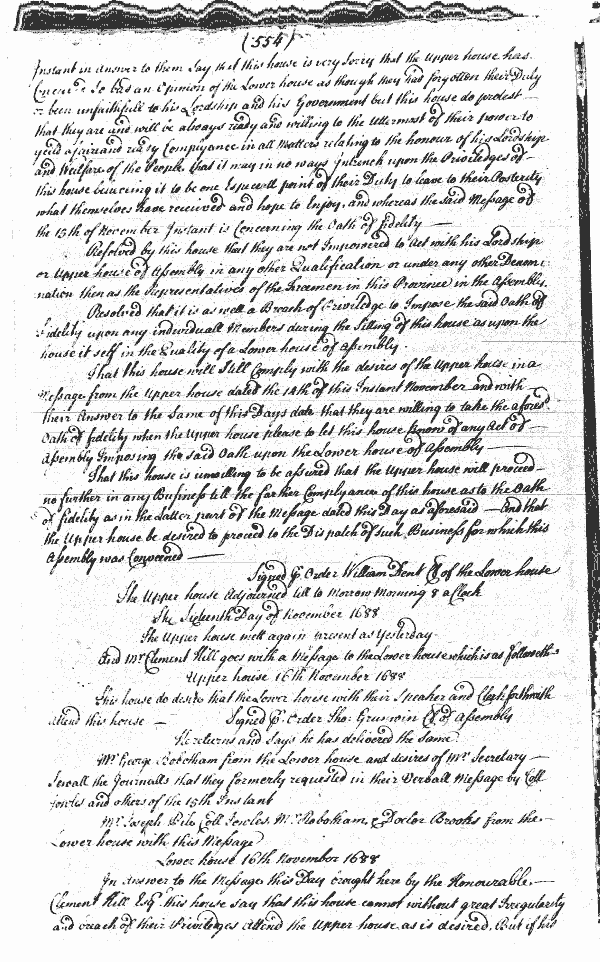 (554)
Instant in answer to them Say that this house is very Sorry that the Upper house has
Conceived So bad an Opinion of the Lower house as though they had forgotten their Duty
or been unfaithfull to his Lordship and his Government but this house do protest
that they are and will be always ready and willing to the Uttermost of their power to
yeild a fair and ready Complyance in all Matters relating to the honour of his Lordship
and Welfare of the People, that it may in no ways Intrench upon the Priviledges of
this house beleiving it to be one Especiall point of their Duty to leave to their Posterity
what themselves have received and hope to Enjoy, and whereas the said Message of
the 15th of November Instant is Concerning the Oath of fidelity
Resolved by this house that they are not Impowered to Act with his Lordship
or Upper house of Assembly in any other Qualification or under any other Denomi
nation then as the Representatives of the freemen in this Province in the Assembly.
Resolved that it is as well a Breach of Priviledge to Impose the said Oath of
Fidelity upon any individuall Members during the Sitting of this house as upon the
house it self in the Quality of a Lower house of Assembly.
That this house will Still Comply with the desires of the Upper house in a
Message from the Upper house dated the 14th of this Instant November and with
their Answer to the Same of this Days date that they are willing to take the aforesd
Oath of fidelity when the Upper house please to let this house know of any Act of
Assembly Imposing the said Oath upon the Lower house of Assembly
That this house is unwilling to be assured that the Upper house will proceed
no further in any Business till the farther Complyance of this house as to the Oath
of fidelity as in the Latter part of the Message dated this Day as aforesaid And that
the Upper house be desired to proceed to the Dispatch of such Business for which this
Assembly was Convened
Signed P. Order William Dent Cl of the Lower house
The Upper house Adjourned till to Morrow Morning 8 a Clock
The Sixteenth Day of November 1688
The Upper house mett again present as Yesterday
And Mr Clement Hill goes with a Message to the Lower house which is as followeth
Upper house 16th November 1688
This house do desire that the Lower house with their Speaker and Clerk forthwith
attend this house Signed P. Order Tho: Grunwin Cl of Assembly
He returns and Says he has delivered the Same
Mr George Robotham from the Lower house and desires of Mr Secretary
Sewall the Journalls that they formerly requested in their Verball Message by Coll
Jowles and others of the 15th Instant
Mr Joseph Pile Coll Jowles, Mr Robotham, & Doctor Brooks from the
Lower house with this Message
Lower house 16th November 1688
In Answer to the Message this Day brought here by the Honourable
Clement Hill Esqr this house say that this house cannot without great Irregularity
and breach of their Priviledges Attend the Upper house as is desired, But if his